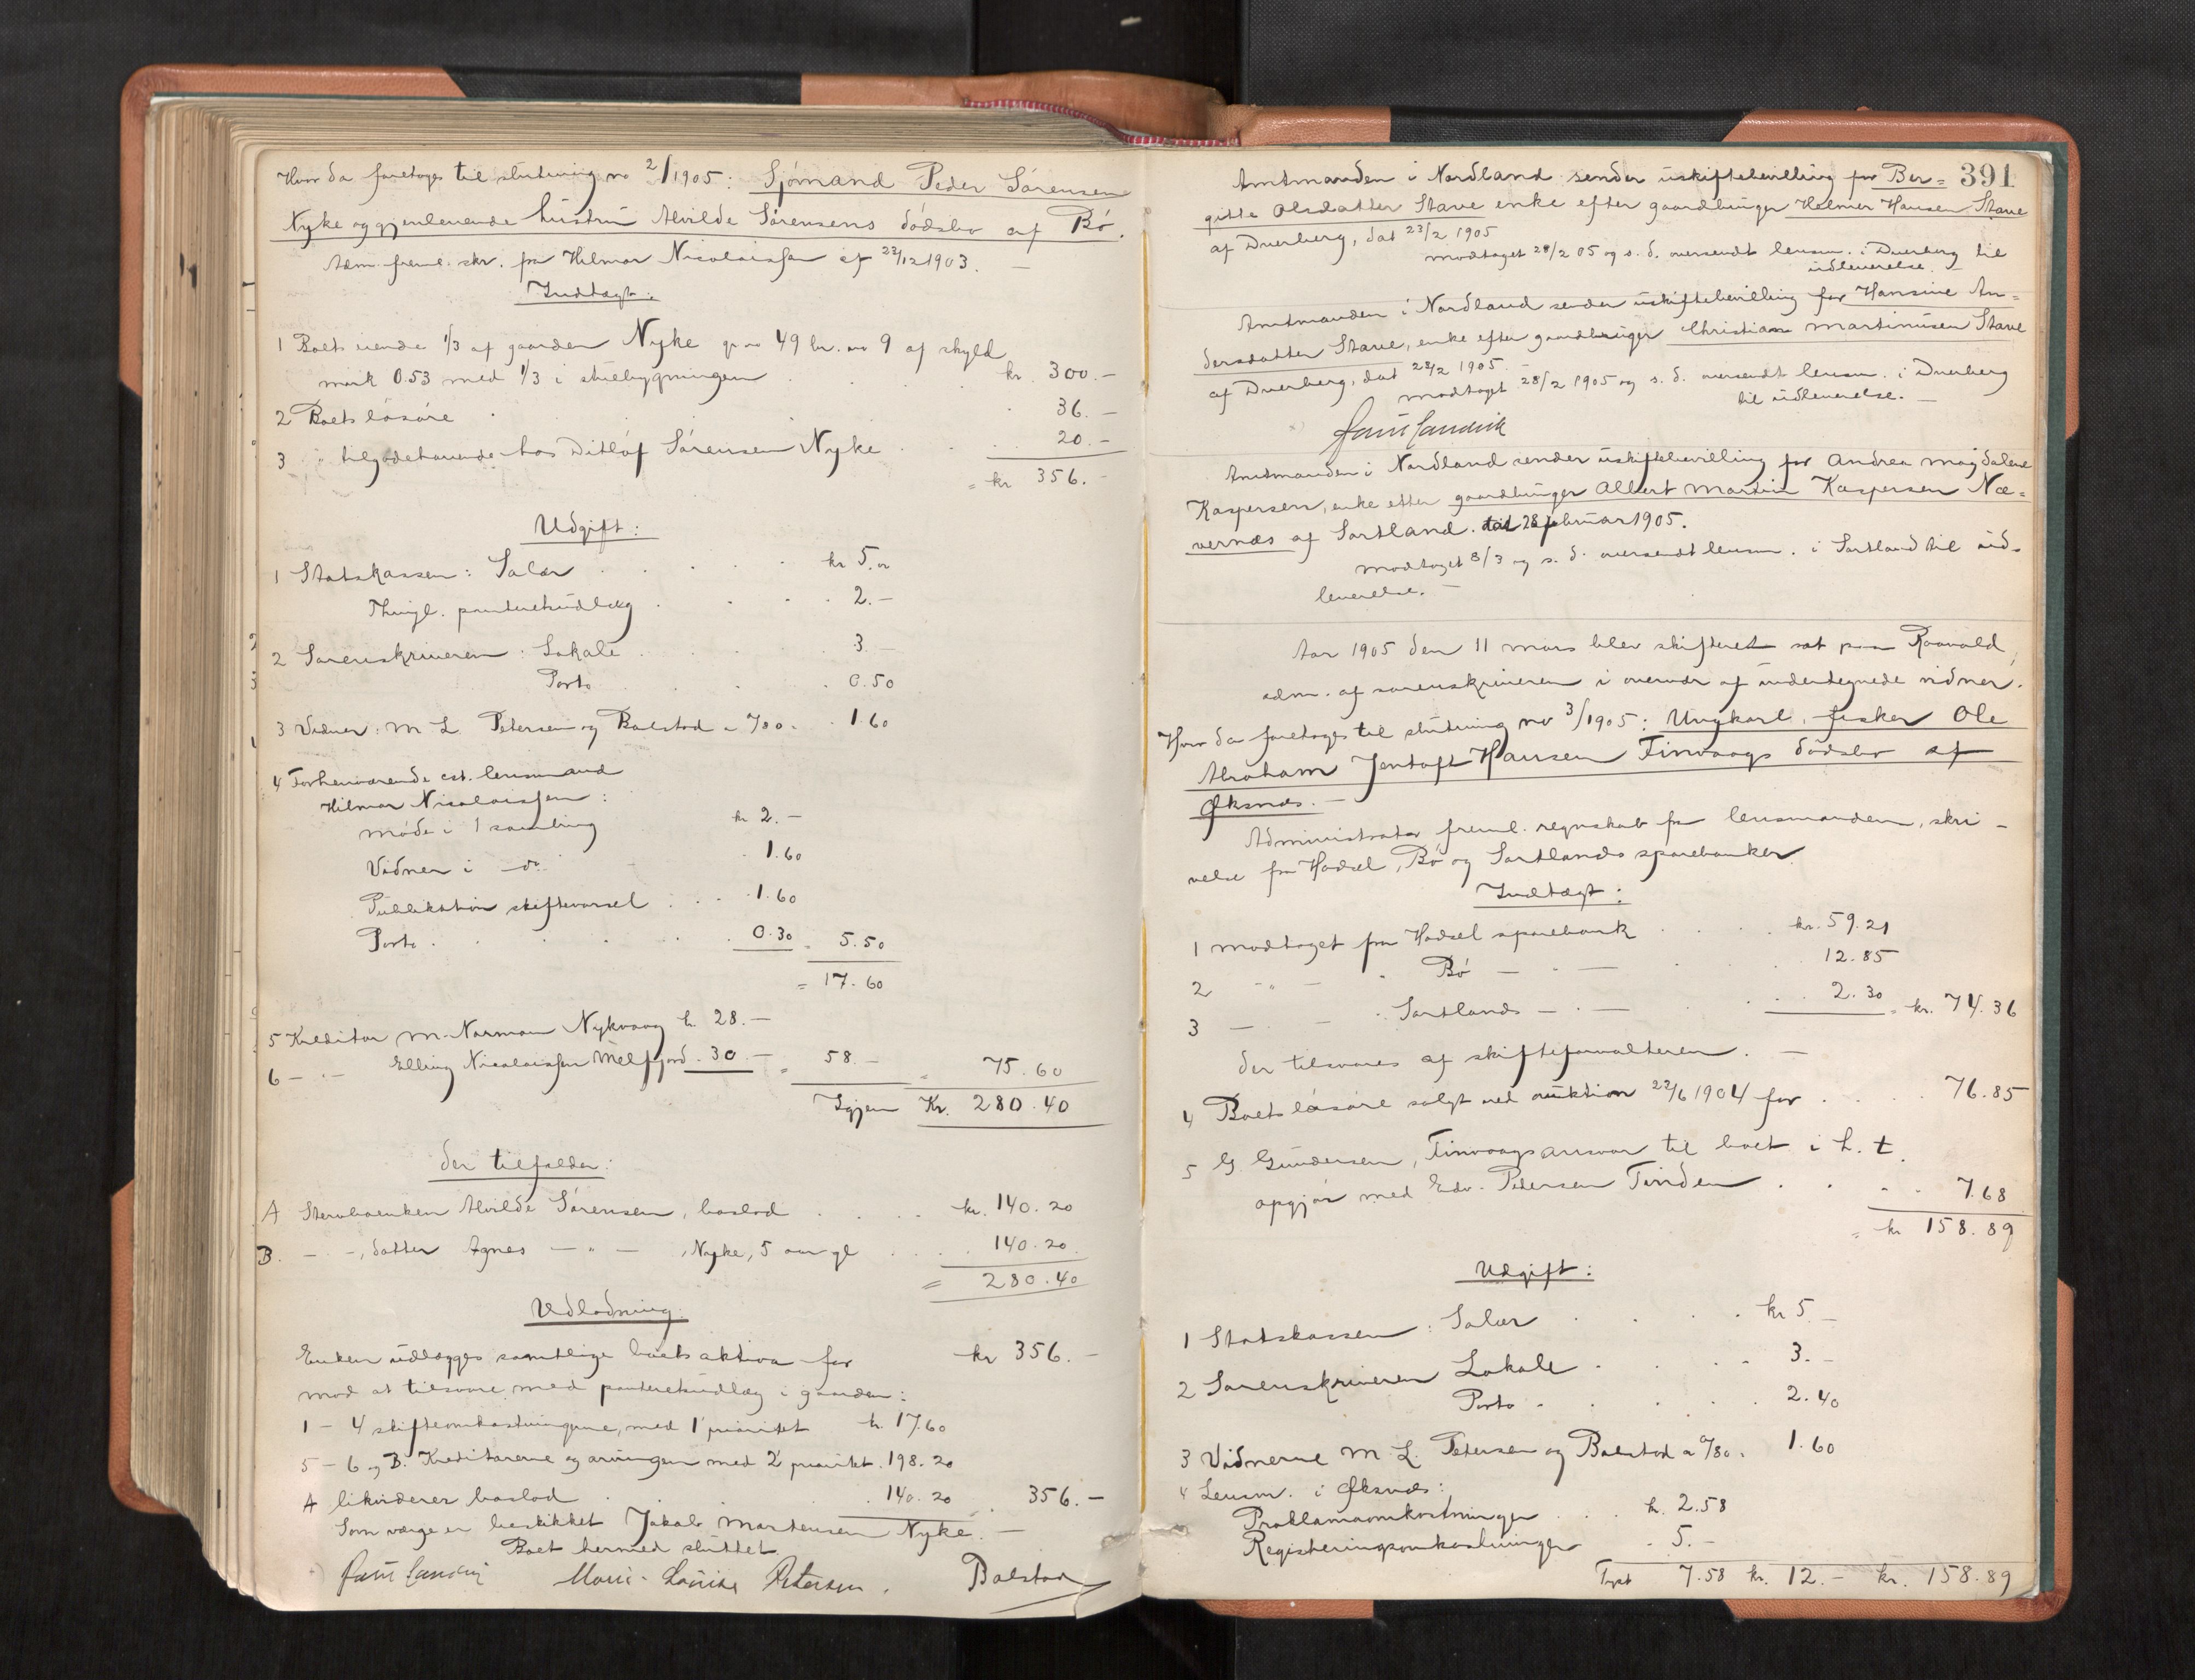 Hvor da foretoges til slutning no 2/1905: Sjømand Peder Sørensen
Nyke og gjenlevende hustru Alvilde Sørensens dødsbo af Bø.
Adm. freml. skr. fra Hilmar Nicolaissen af 22/12 1903. —
Indtægt:
1 Boets iende 1/3 af gaarden Nyke gr. no 49 br. no 9 af skyld
mark 0.53 med 1/3 i stuebygningen . . . kr. 300.—
2 Boets løsøre . . 36.—
3 " tilgodehavende hos Ditløf Sørensen Nyke . . . 20.—
= kr 356.—
Udgift:
1 Statskassen: Salær . . . . . kr 5.00
Thingl. panteretudlæg . . . . 2.—
2 Sorenskriveren: Lokale . . . . 3.—
Porto . . . 0.50
3 Vidner: M L Petersen og Balstad a 0/80 . . 1.60
4 Forhenværende cst. lensmand
Hilmar Nicolaissen:
møde i 1 samling kr 2.—
Vidner i do . 1.60
Publikation skiftevarsel . . . 1.60
Porto . . . . . 0.30 = 5.50
= 17.60
5 Kreditor M. Norman Nykvaag kr. 28.—
6 — " — Elling Nicolaissen Melfjord . 30.— = 58.— = 75.60
Igjen Kr. 280.40
der tilfalder:
A Stervboenken Alvilde Sørensen, boslod . . . . kr. 140.20
B. — -, datter Agnes — " — , Nyke, 5 aar gl . . . 140.20
= 280.40
Udlodning:
Enken udlægges samtlige boets aktiva for kr 356.—
mod at tilsvare med panteretudlæg i gaarden:
1 – 4 skifteomkostningerne, med 1 prioritet kr. 17.60
5 – 6 og B. Kreditorerne og arvingen med 2 prioritet . 198.20
A likviderer boslod . . . . 140.20 . 356.—
Som værge er beskikket Jakob Martensen Nyke. —
Boet hermed sluttet.
Marie Louise Petersen. Balstad
391
Amtmanden i Nordland sender uskiftebevilling for Ber=
gitte Olsdatter Stave enke efter gaardbruger Helmer Hansen Stave
af Dverberg, dat 23/2 1905
modtaget 28/2 05 og s. d. oversendt lensm. i Dverberg til
udleverelse. —
Amtmanden i Nordland sender uskiftebevilling for Hansine An=
dersdatter Stave, enke efter gaardbruger Christian Martinusen Stave
af Dverberg, dat 23/2 1905. —
modtaget 28/2 1905 og s. d. oversendt lensm. i Dverberg
til udleverelse. —
Amtmanden i Nordland sender uskiftebevilling for Andrea Magdalene
Kaspersen, enke efter gaardbruger Albert Martin Kaspersen Næ=
vernæs af Sortland. dat 28 februar 1905.
modtaget 8/3 og s. d. oversendt lensm. i Sortland til ud-
leverelse. —
Aar 1905 den 11 mars blev skifteret sat paa Raavold,
adm. af sorenskriveren i overvær af undertegnede vidner.
Hvor da foretoges til slutning no 3/1905: Ungkarl, fisker Ole
Abraham Jentoft Hansen Tinvaags dødsbo af
Øksnes. —
Administrator freml. regnskab fra lensmanden, skri-
velse fra Hadsel, Bø og Sortlands sparebanker.
Indtægt:
1 modtaget fra Hadsel sparebank . . . . kr. 59.21
2 — " — . Bø — " — . . . 12.85
3 — . — . Sortlands — . — . . . 2.30 = kr. 74.36
der tilsvares af skifteforvalteren. —
4 Boets løsøre solgt ved auktion 22/6 1904 for . . . . 76.85
5 G. Gundersen, Tinvaags ansvar til boet i h. t.
opgjør med Edv. Petersen Tinden . . . . 7.68
= kr 158.89
Udgift:
1 Statskassen: Salær . . . . kr 5.—
2 Sorenskriveren Lokale . . . . 3.—
Porto . . . . . 2.40
3 Vidnerne M L. Petersen og Balstad a 0/80 . 1.60
4 Lensm. i Øksnes:
Proklamaomkostninger . . . kr. 2.58
Registeringsomkostninger . 5.—
Trpt 7.58 kr. 12.— kr. 158.89